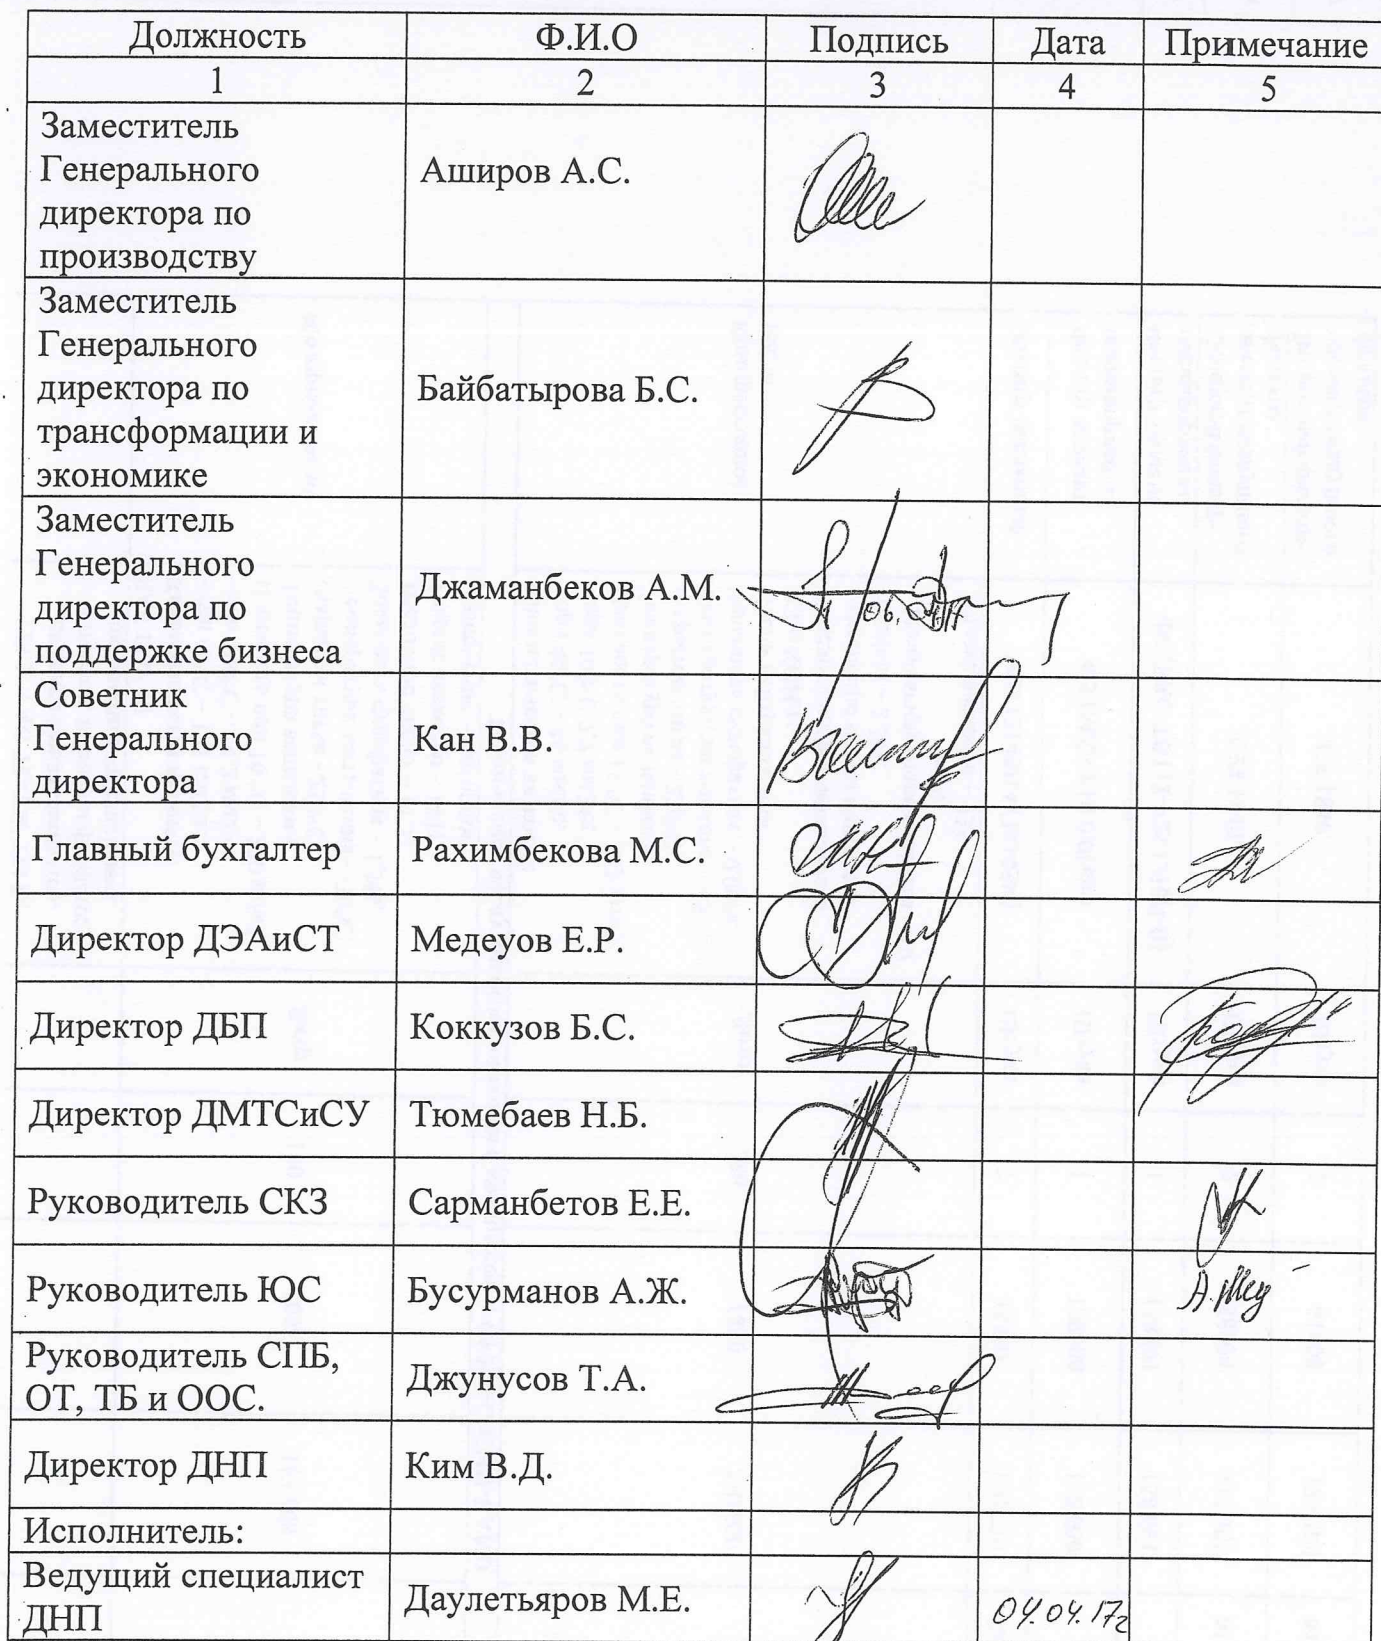 Должность Ф.И.О Подпись Дата Примечание
1 2 3 4 5
Заместитель
Генерального
директора по
производству
Аширов А.С.
Заместитель
Генерального
директора по
трансформации и
экономике
Байбатырова Б.С.
Заместитель
Генерального
директора по
поддержке бизнеса
Джаманбеков А.М.
Советник
Генерального
директора
Кан В.В.
Главный бухгалтер Рахимбекова М.С.
Директор ДЭАиСТ Медеуов Е.Р.
Директор ДБП Коккузов Б.С.
Директор ДМТСиСУ Тюмебаев Н.Б.
Руководитель СКЗ Сарманбетов Е.Е.
Руководитель ЮС Бусурманов А.Ж.
Руководитель СПБ,
ОТ, ТБ и ООС.
Джунусов Т.А.
Директор ДНП Ким В.Д.
Исполнитель:
Ведущий специалист
ДНП
Даулетьяров М.Е. 04.04.17г